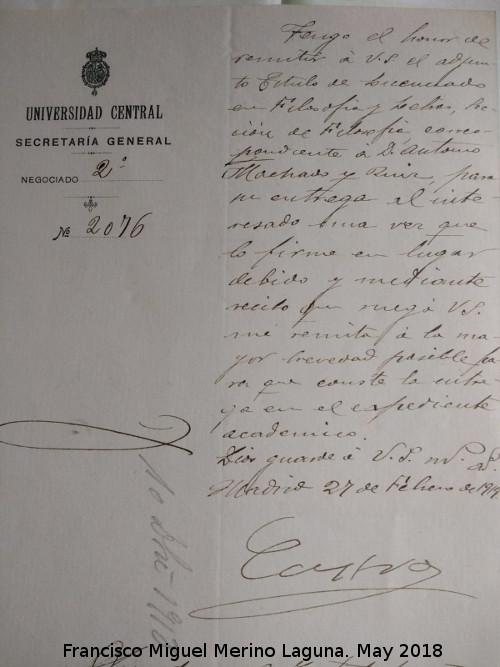 UNIVERSIDAD CENTRAL
SECRETARÍA GENERAL
NEGOCIADO 2º
№ 2076
Tengo el honor de
remitir á V.S. el adjun-
to Título de Licenciado
en Filosofía y Letras, Sec-
ción de Filosofía, corres-
pondiente á D. Antonio
Machado y Ruiz, para
su entrega al inte-
resado una vez que
lo firme en lugar
debido y mediante
recibo que ruego á V.S.
me remita á la ma-
yor brevedad posible pa-
ra que conste la entre-
ga en el expediente
académico.
Dios guarde á V.S. m.s a.s
Madrid 27 de Febrero de 1919
Francisco Miguel Merino Laguna. May 2018